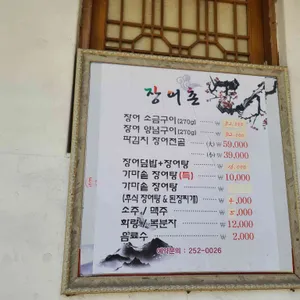 장어촌
장어 소금구이(270g) ₩
장어 양념구이(270g) ₩
묵김치 장어전골 (大) ₩ 59,000
(小) ₩ 39,000
장어덮밥+장어탕 ₩
가마솥 장어탕(特) ₩ 10,000
가마솥 장어탕 ₩
(후식 장어탕 & 된장찌개) ₩ 4,000
소주 / 맥주 ₩ ,000
화랑 / 복분자 ₩ 12,000
음료수 ₩ 2,000
예약문의 : 252-0026